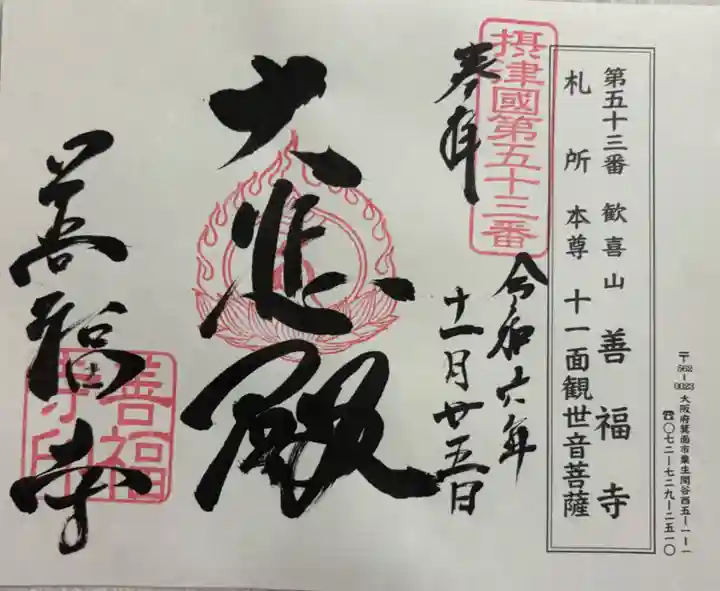 〒562-0023 大阪府箕面市粟生間谷西五-一-一
☎〇七二-七二九-二五一〇
第五十三番 歓喜山 善福寺
札所本尊 十一面観世音菩薩
摂津國第五十三番
奉拝
令和六年
十一月廿五日
大悲殿
善福寺
善福寺印